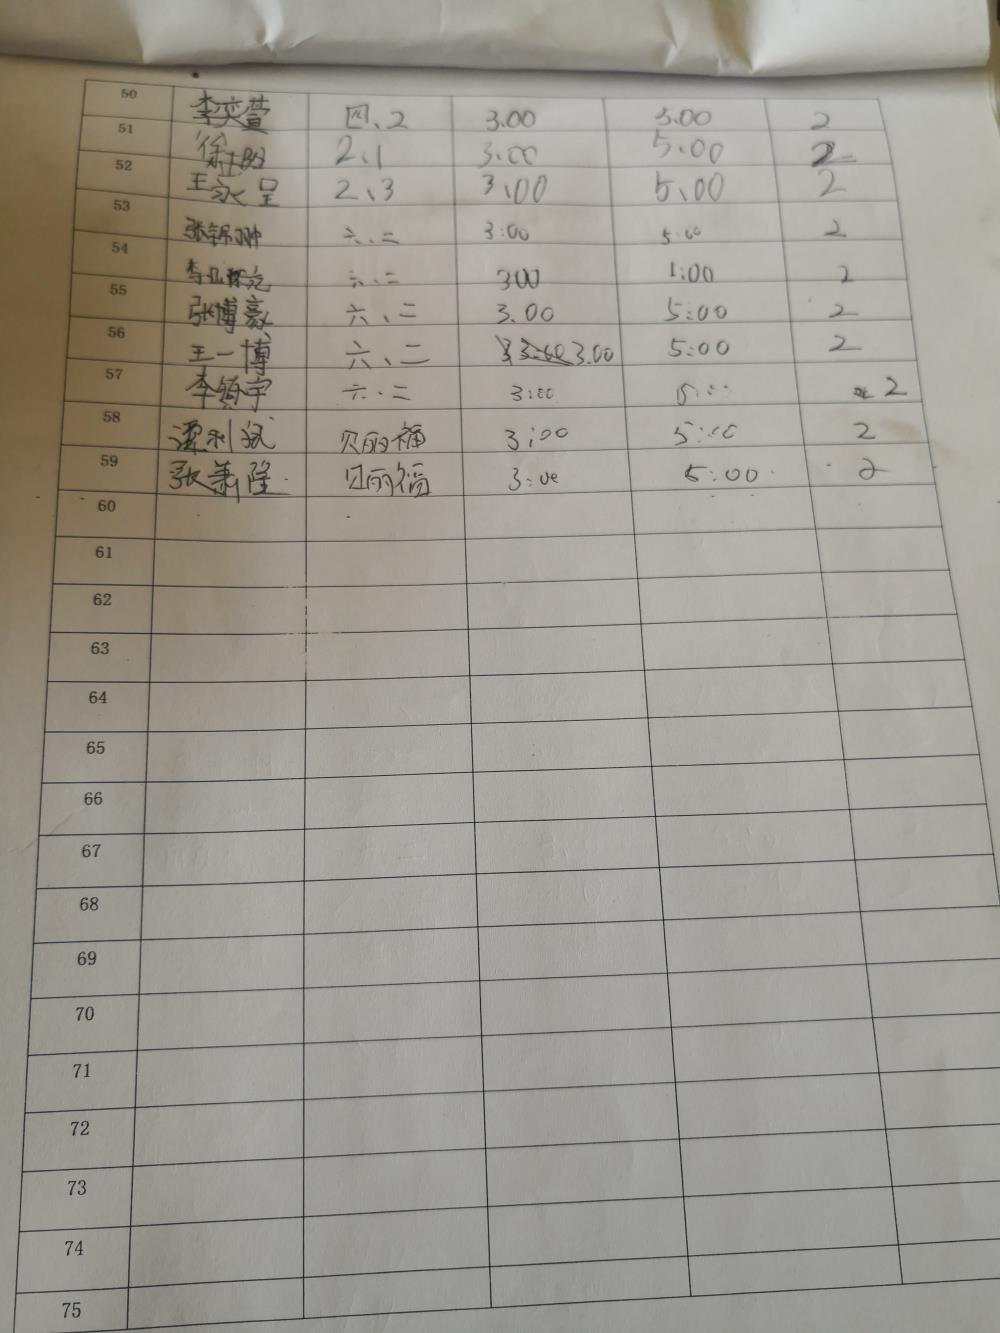 50 李奕萱 四、2 3.00 5.00 2
51 徐 2、1 3.00 5.00 2
52 王永呈 2、3 3.00 5.00 2
53 张 六、二 3:00 5:00 2
54 李 六、二 300 1:00 2
55 张博豪 六、二 3.00 5:00 2
56 王一博 六、二 3.00 5:00 2
57 李 宇 六、二 3:00 5:00 2
58 谭利斌 贝丽福 3:00 5:00 2
59 张萧隆 贝丽福 3:00 5:00 2
60
61
62
63
64
65
66
67
68
69
70
71
72
73
74
75